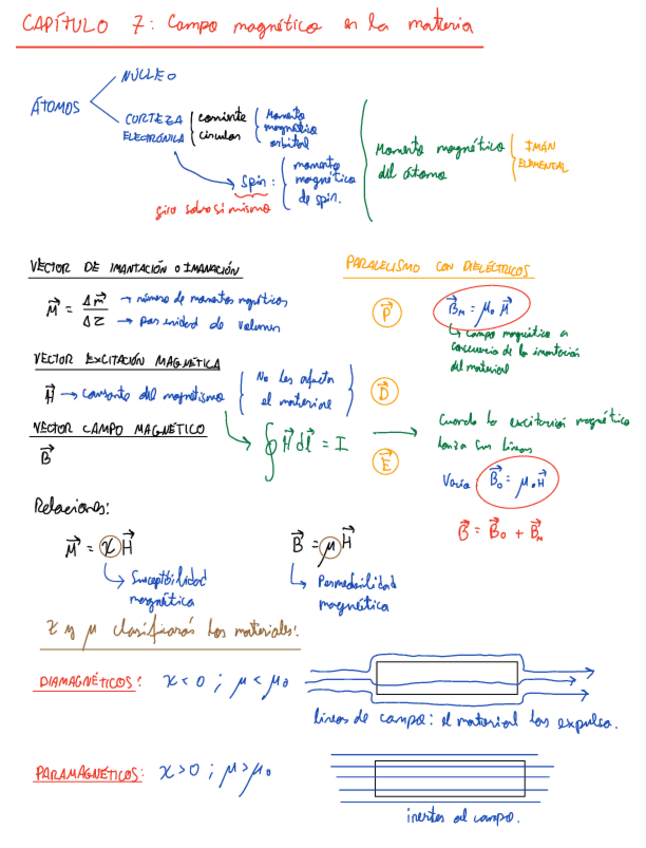 CAPÍTULO 7: Campo magnético en la materia
ÁTOMOS
NÚCLEO
CORTEZA ELECTRÓNICA
corriente circular
Momento magnético orbital
Spin:
giro sobre si mismo
momento magnético de spin.
Momento magnético del átomo
IMÁN ELEMENTAL
VECTOR DE IMANTACIÓN o IMANACIÓN
M⃗ = Δm⃗ / Δτ
→ número de momentos magnéticos
→ por unidad de volumen
VECTOR EXCITACIÓN MAGNÉTICA
H⃗ → causante del magnetismo
No les afecta el material
VECTOR CAMPO MAGNÉTICO
B⃗
∮ H⃗ dl⃗ = I
PARALELISMO CON DIELÉCTRICOS
P⃗
D⃗
E⃗
B⃗m = μ₀ M⃗
Campo magnético a
consecuencia de la imantación
del material
Cuando la excitación magnética
lanza sus líneas
Vacío B⃗₀ = μ₀ H⃗
B⃗ = B⃗₀ + B⃗m
Relaciones:
M⃗ = χ H⃗
Susceptibilidad
magnética
B⃗ = μ H⃗
Permeabilidad
magnética
χ y μ clasificarás los materiales:
DIAMAGNÉTICOS: χ < 0 ; μ < μ₀
líneas de campo: el material las expulsa.
PARAMAGNÉTICOS: χ > 0 ; μ > μ₀
inertes al campo.